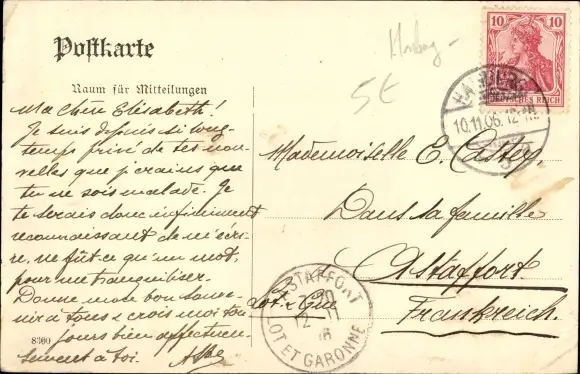 Postkarte
Raum für Mitteilungen
Ma chère Elisabeth!
Je suis depuis si long-
temps privé de tes nou-
velles que je crains que
tu ne sois malade. Je
te serais donc infiniment
reconnaissant de m'écri-
re, ne fût-ce qu'un mot,
pour me tranquiliser.
Donne mon bon souve-
nir à tous & crois moi tou-
jours bien affectueu-
sement à toi.
8300
5€
10
10
DEUTSCHES REICH
HAMBURG
10.11.06. 12-
Mademoiselle E. Castex
Dans sa famille
Astaffort
Lot & Gne
Frankreich.
ASTAFFORT
12 - 11
06
LOT ET GARONNE